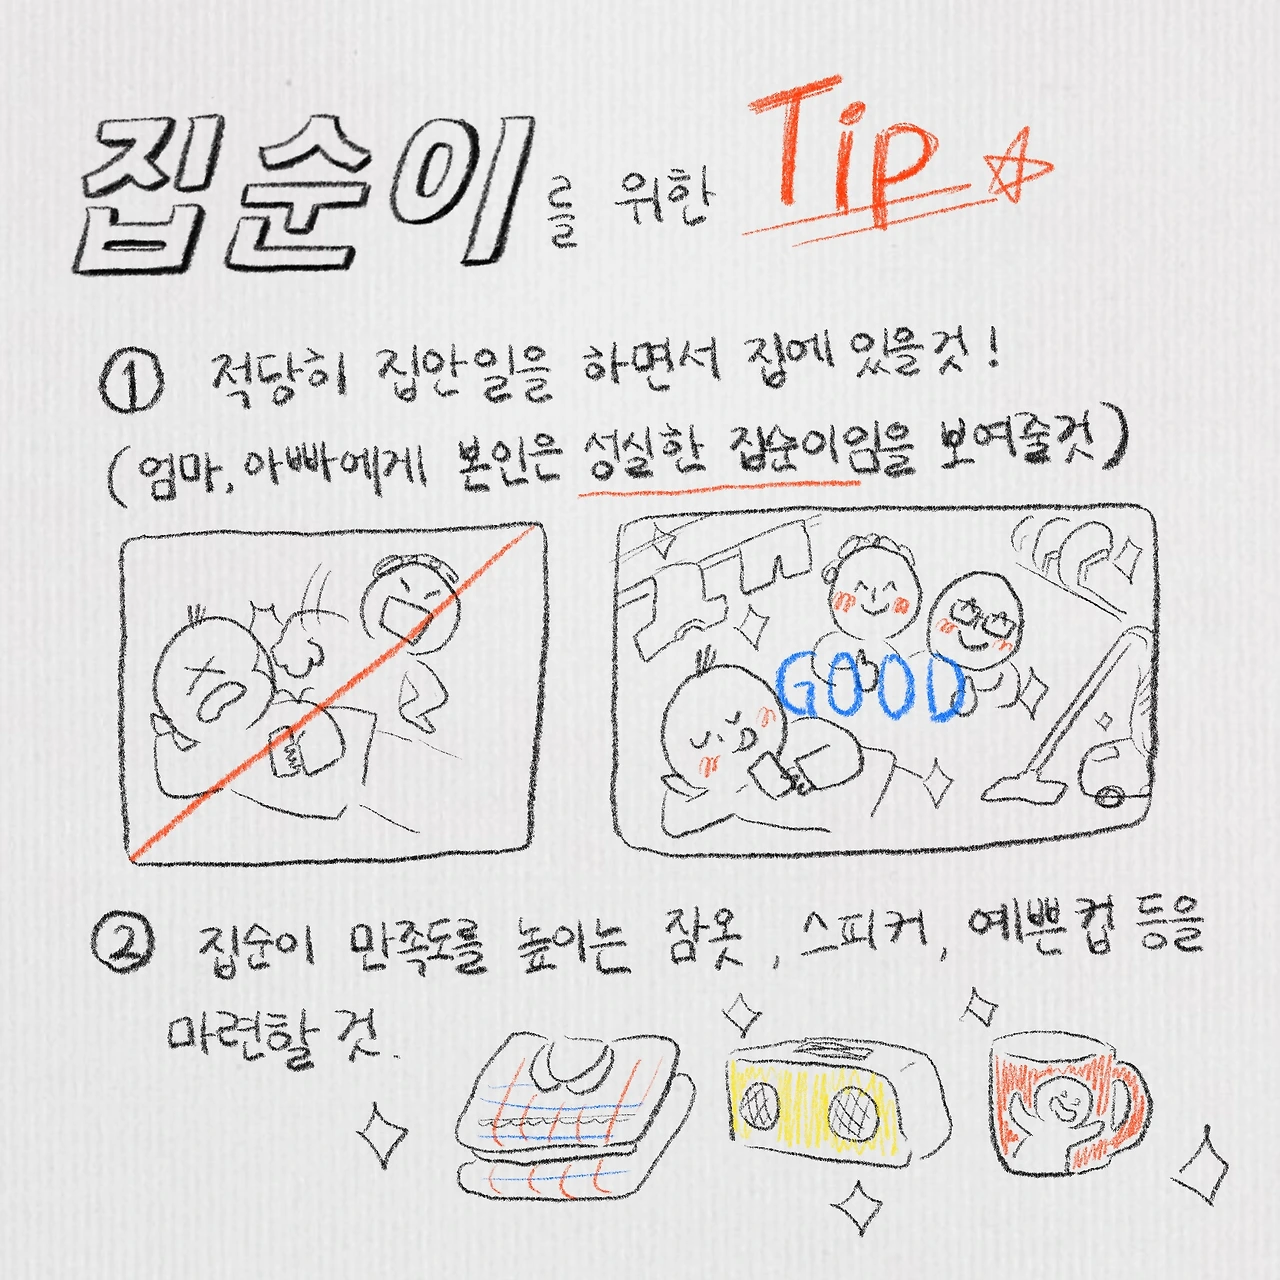 집순이를 위한 Tip
① 적당히 집안일을 하면서 집에 있을것!
(엄마, 아빠에게 본인은 성실한 집순이임을 보여줄것)
GOOD
② 집순이 만족도를 높이는 잠옷, 스피커, 예쁜컵 등을
마련할 것.